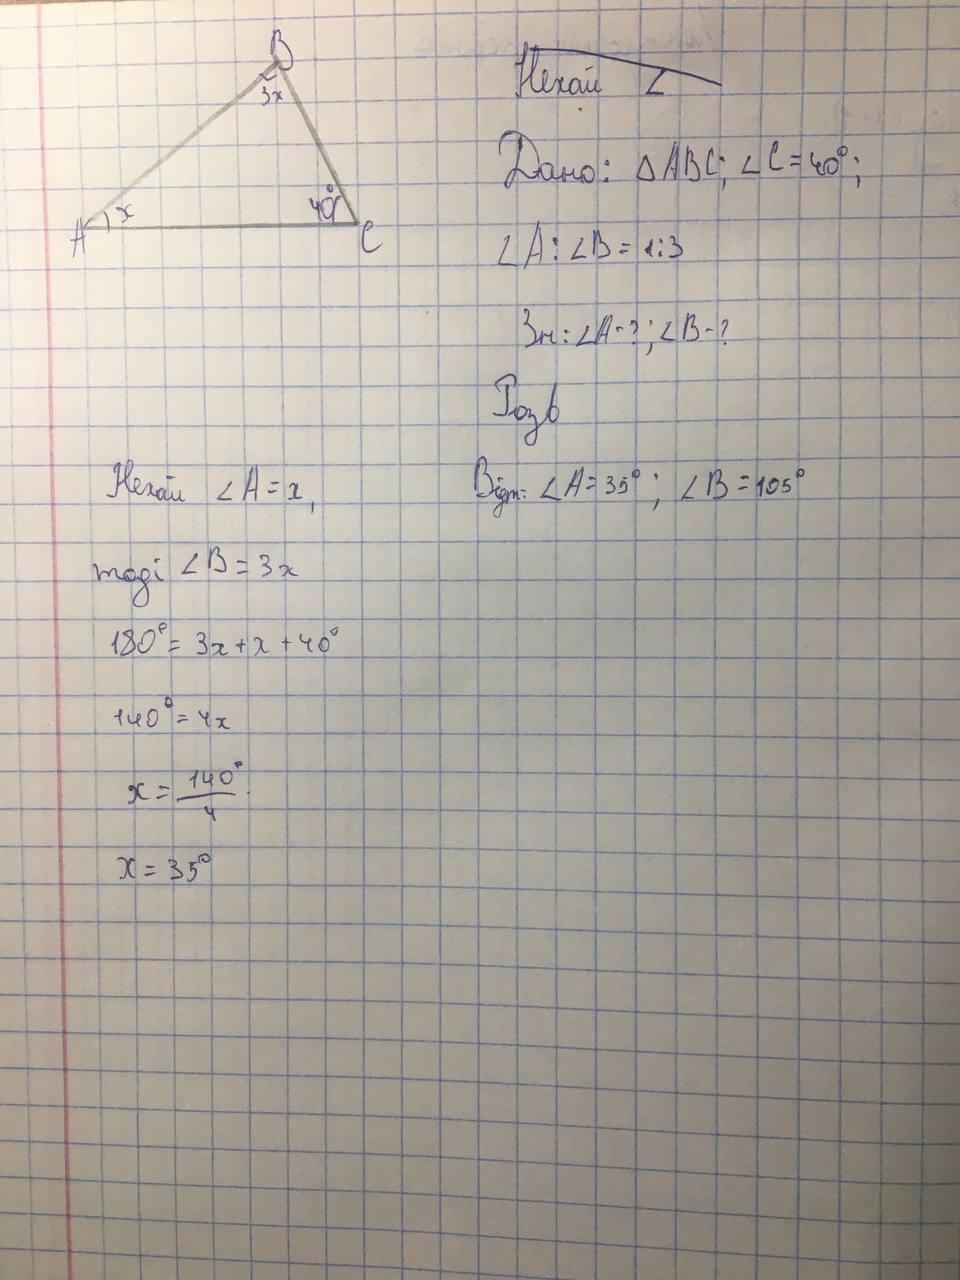 B
3x
A
x
40°
C
Нехай ∠
Дано: △ABC; ∠C = 40°;
∠A : ∠B = 1:3
Зн: ∠A - ?; ∠B - ?
Розв
Нехай ∠A = x,
тоді ∠B = 3x
180° = 3x + x + 40°
140° = 4x
x = 140° / 4
x = 35°
Відп: ∠A = 35°; ∠B = 105°